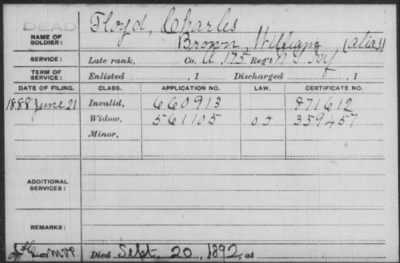 DEAD
NAME OF SOLDIER: Floyd, Charles
Brown, William (alias)
SERVICE: Late rank, Co. A 175 Reg't N.Y. Inf
TERM OF SERVICE: Enlisted , 1 Discharged , 1
DATE OF FILING. CLASS. APPLICATION NO. LAW. CERTIFICATE NO.
1888 June 21 Invalid, 660913 871612
Widow, 561105 359457
Minor,
ADDITIONAL SERVICES:
REMARKS:
Died Sept. 20, 1892, at